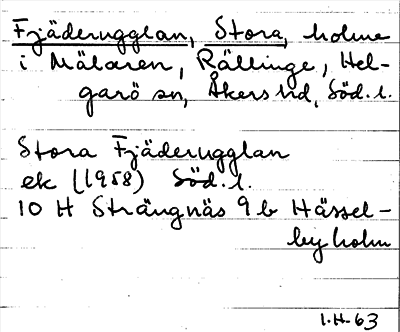 Fjäderugglan, Stora, holme
i Mälaren, Rällinge, Hel-
garö sn, Åkers hd, Söd. l.
Stora Fjäderugglan
ek (1958) Söd. l.
10 H Strängnäs 9 b Hässel-
byholm
1.H.63